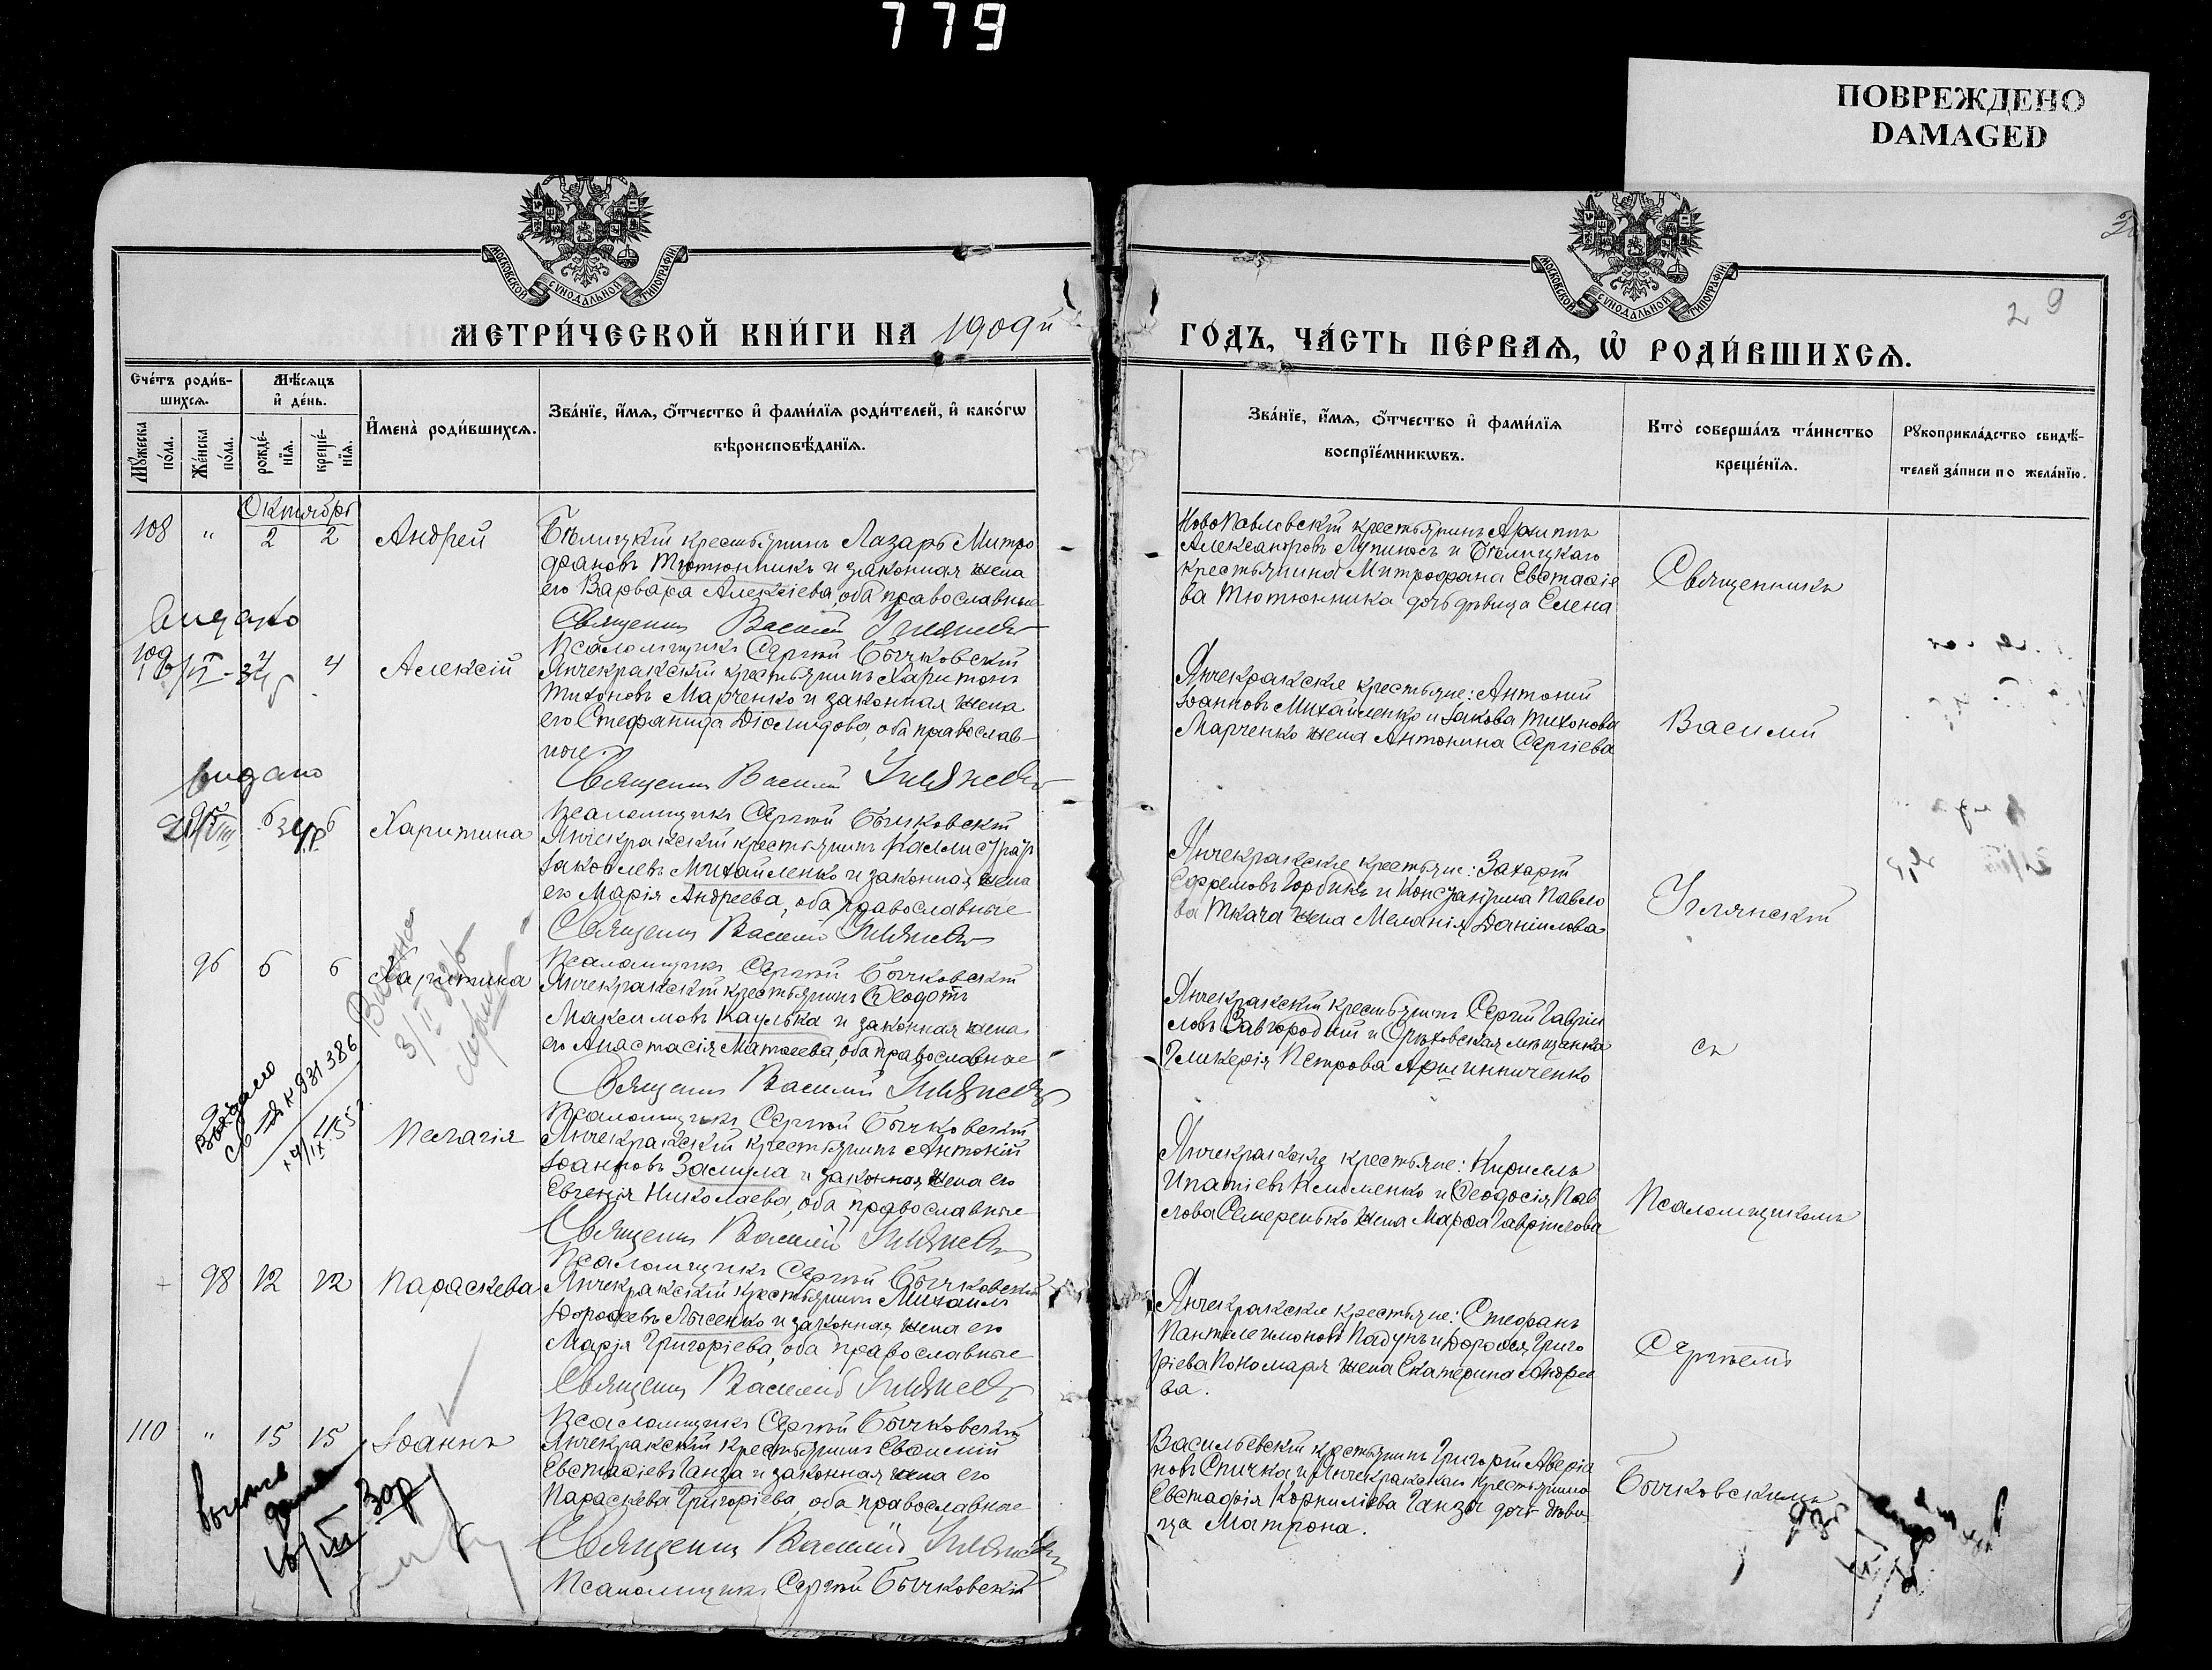 779
ПОВРЕЖДЕНО
DAMAGED
МОСКОВСКОЙ СѴНОДАЛЬНОЙ ТИПОГРАФІИ
МОСКОВСКОЙ СѴНОДАЛЬНОЙ ТИПОГРАФІИ
29
МЕТРИ́ЧЕСКОЙ КНИ́ГИ НА 1909й
ГО́ДЪ, ЧА́СТЬ ПЕ́РВАѦ, Ѡ҆ РОДИ́ВШИХСѦ.
Сче́тъ роди́в-
шихсѧ.
Мѣ́сѧцъ
и҆ де́нь.
Мꙋ́жеска по́ла.
Же́нска по́ла.
рожде́-нїѧ.
креще́-нїѧ.
И҆мена̀ роди́вшихсѧ.
Зва́нїе, и҆́мѧ, ѻ҆́тчество и҆ фами́лїѧ роди́телей, и҆ како́гѡ
вѣроисповѣ́данїѧ.
Зва́нїе, и҆́мѧ, ѻ҆́тчество и҆ фами́лїѧ
воспрїе́мникѡвъ.
Кто̀ соверша́лъ та́инство
креще́нїѧ.
Рꙋкоприкла́дство свидѣ́-
телей за́писи по жела́нїю.
Октябрь
108 " 2 2 Андрей
Бѣлицкій крестьянинъ Лазарь Митро
фановъ Тютюнникъ и законная жена
его Варвара Алексіева, оба православные
Священникъ Василій
Псаломщикъ Сергій Бычковскій
Новопавловскій крестьянинъ Архиппъ
Александровъ Лупиносъ и Бѣлицкаго
крестьянина Митрофана Евстафіе
ва Тютюнника дочь дѣвица Елена
Священникъ
видано
109 4 4 Алексій
Янчекракскій крестьянинъ Харитонъ
Тихоновъ Марченко и законная жена
его Стефанида Діомидова, оба православ-
ные.
Священникъ Василій
Псаломщикъ Сергій Бычковскій
Янчекракскіе крестьяне: Антоній
Іоанновъ Михайленко и Іакова Тихонова
Марченко жена Антонина Сергіева
Василій
видано
95 6 6 Харитина
Янчекракскій крестьянинъ Каллистратъ
Іаковлевъ Михайленко и законная жена
его Марія Андреева, оба православные
Священникъ Василій
Псаломщикъ Сергій Бычковскій
Янчекракскіе крестьяне: Захарій
Ефремовъ Горбикъ и Константина Павло
ва Ткача жена Меланія Даніилова
96 6 6 Харитина
Янчекракскій крестьянинъ Ѳеодотъ
Максимовъ Каулька и законная жена
его Анастасія Матѳеева, оба православные
Священникъ Василій
Псаломщикъ Сергій Бычковскій
Янчекракскій крестьянинъ Сергій Гаврій
ловъ Завгородній и Орѣховская мѣщанка
Гликерія Петрова Аршинниченко
съ
Пелагія
Янчекракскій крестьянинъ Антоній
Іоанновъ Замула и законная жена его
Евгенія Николаева, оба православные
Священникъ Василій
Псаломщикъ Сергій Бычковскій
Янчекракскіе крестьяне: Кириллъ
Ипатіевъ Клименко и Ѳеодосія Пав
лова Семеренько жена Марѳа Гавріилова
Псаломщикомъ
98 12 12 Параскева
Янчекракскій крестьянинъ Михаилъ
Дороѳеевъ Лысенко и законная жена его
Марія Григоріева, оба православные
Священникъ Василій
Псаломщикъ Сергій Бычковскій
Янчекракскіе крестьяне: Стефанъ
Пантелеимоновъ Падунъ и Дороѳея Григо
ріева Пономаря жена Екатерина Андрее
ва.
Сергіемъ
110 " 15 15 Іоаннъ
Янчекракскій крестьянинъ Евѳимій
Евстафіевъ Ганза и законная жена его
Параскева Григоріева, оба православные
Священникъ Василій
Псаломщикъ Сергій Бычковскій
Васильевскій крестьянинъ Григорій Аверіа
новъ Спичка и Янчекракскаго крестьянина
Евстафія Корниліева Ганзы дочь дѣви-
ца Матрона.
Бычковскимъ